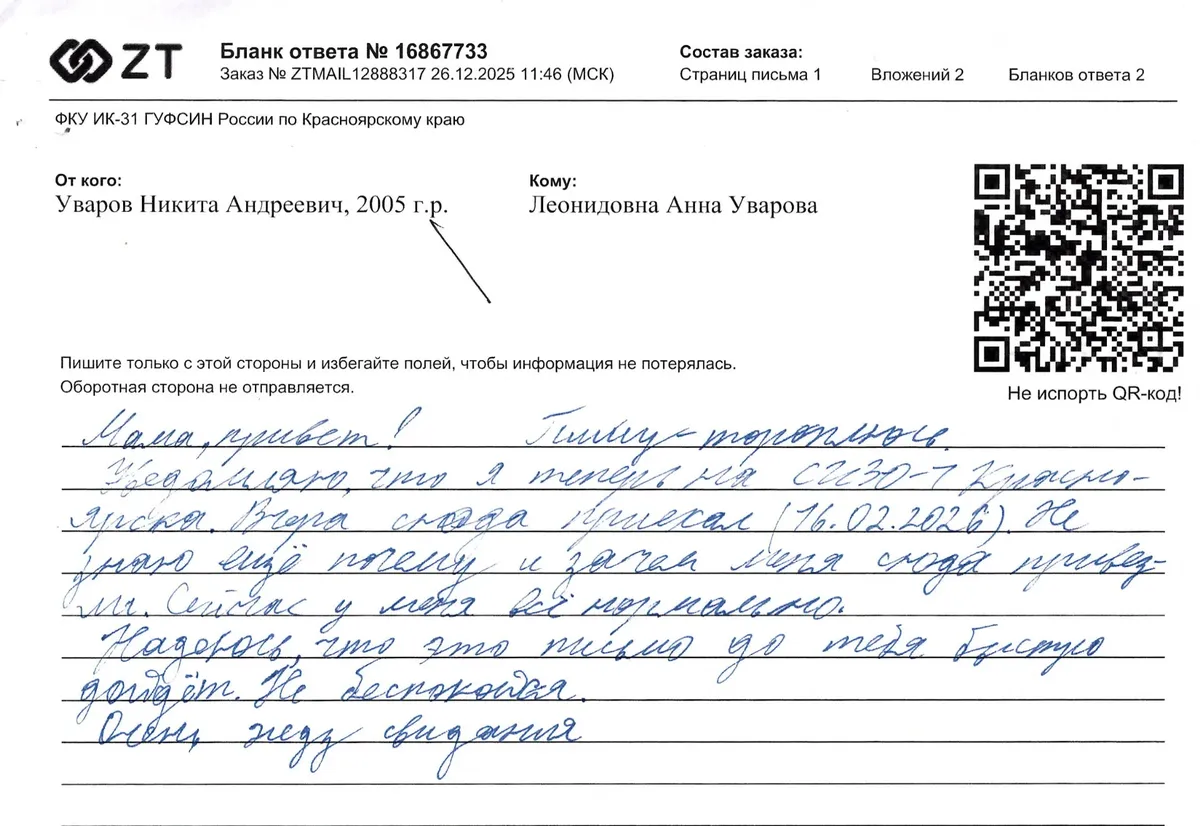 ZT
Бланк ответа № 16867733
Заказ № ZTMAIL12888317 26.12.2025 11:46 (МСК)
Состав заказа:
Страниц письма 1 Вложений 2 Бланков ответа 2
ФКУ ИК-31 ГУФСИН России по Красноярскому краю
От кого:
Уваров Никита Андреевич, 2005 г.р.
Кому:
Леонидовна Анна Уварова
Пишите только с этой стороны и избегайте полей, чтобы информация не потерялась.
Оборотная сторона не отправляется.
Не испорть QR-код!
Мама, привет! Пишу – тороплюсь.
Уведомляю, что я теперь на СИЗО-1 Красно-
ярска. Вчера сюда приехал (16.02.2026). Не
знаю ещё почему и зачем меня сюда привез-
ли. Сейчас у меня всё нормально.
Надеюсь, что это письмо до тебя быстро
дойдёт. Не беспокойся.
Очень жду свидания